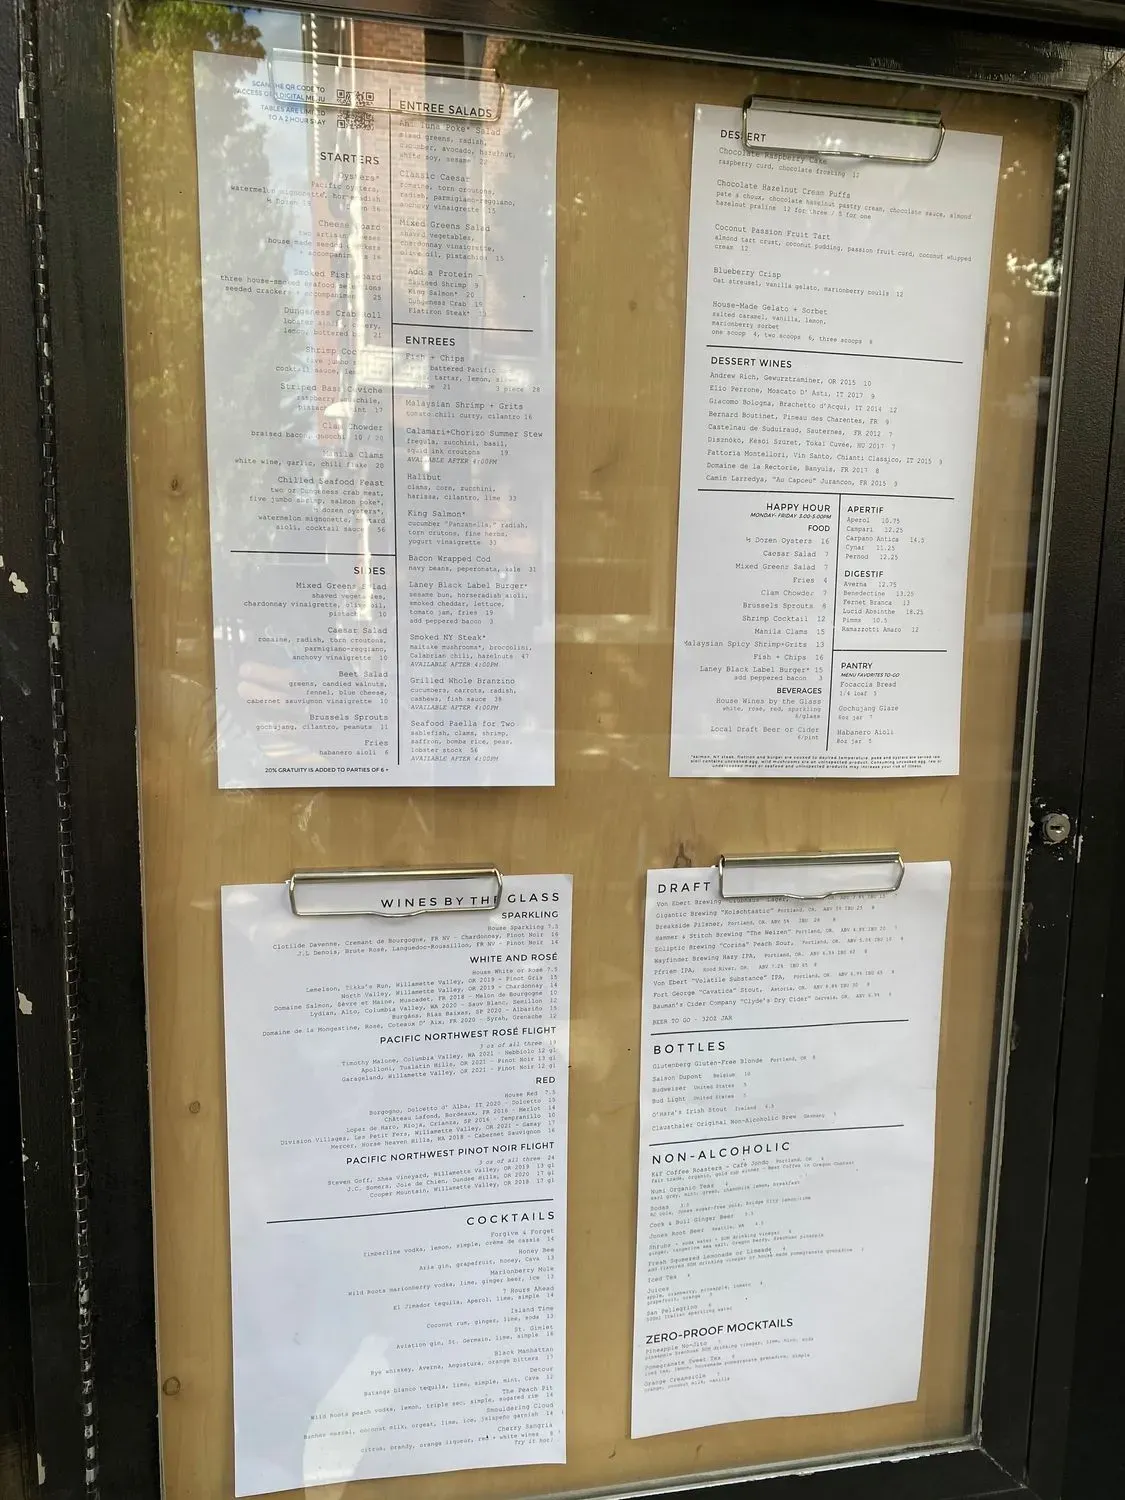 SCAN THE QR CODE TO
ACCESS OUR DIGITAL MENU
TABLES ARE LIMITED
TO A 2 HOUR STAY
STARTERS
Oysters*
Pacific oysters,
watermelon mignonette, horseradish
Cheese Board
two artisan cheeses
house made seeded crackers
+ accompaniments 16
Smoked Fish Board
three house-smoked seafood selections
seeded crackers + accompaniment 25
Dungeness Crab Roll
lobster celery,
lemon, buttered 21
Shrimp Cocktail
five jumbo
cocktail sauce, lemon
Striped Bass Ceviche
raspberry
pistachio, mint 17
Clam Chowder
braised bacon, gnocchi 10 / 20
Manila Clams
white wine, garlic, chili flake 20
Chilled Seafood Feast
two oz Dungeness crab meat,
five jumbo shrimp, salmon poke*,
½ dozen oysters*,
watermelon mignonette, mustard
aioli, cocktail sauce 56
SIDES
Mixed Greens Salad
shaved vegetables,
chardonnay vinaigrette, olive oil,
pistachio 10
Caesar Salad
romaine, radish, torn croutons,
parmigiano-reggiano,
anchovy vinaigrette 10
Beet Salad
greens, candied walnuts,
fennel, blue cheese,
cabernet sauvignon vinaigrette 10
Brussels Sprouts
gochujang, cilantro, peanuts 11
Fries
habanero aioli 6
20% GRATUITY IS ADDED TO PARTIES OF 6 +
ENTREE SALADS
Ahi Tuna Poke* Salad
mixed greens, radish,
cucumber, avocado, hazelnut,
white soy, sesame 22
Classic Caesar
romaine, torn croutons,
radish, parmigiano-reggiano,
anchovy vinaigrette 15
Mixed Greens Salad
shaved vegetables,
chardonnay vinaigrette,
olive oil, pistachios 15
Add a Protein -
Sauteed Shrimp 9
King Salmon* 20
Dungeness Crab 19
Flatiron Steak*
ENTREES
Fish + Chips
battered Pacific
tartar, lemon,
piece 21 3 piece 28
Malaysian Shrimp + Grits
tomato chili curry, cilantro 16
Calamari+Chorizo Summer Stew
fregula, zucchini, basil,
squid ink croutons 19
AVAILABLE AFTER 4:00PM
Halibut
clams, corn, zucchini,
harissa, cilantro, lime 33
King Salmon*
cucumber "Panzanella," radish,
torn croutons, fine herbs,
yogurt vinaigrette 33
Bacon Wrapped Cod
navy beans, peperonata, kale 31
Laney Black Label Burger*
sesame bun, horseradish aioli,
smoked cheddar, lettuce,
tomato jam, fries 19
add peppered bacon 3
Smoked NY Steak*
maitake mushrooms*, broccolini,
Calabrian chili, hazelnuts 47
AVAILABLE AFTER 4:00PM
Grilled Whole Branzino
cucumbers, carrots, radish,
cashews, fish sauce 38
AVAILABLE AFTER 4:00PM
Seafood Paella for Two
sablefish, clams, shrimp,
saffron, bomba rice, peas,
lobster stock 56
AVAILABLE AFTER 4:00PM
DESSERT
Chocolate Raspberry Cake
raspberry curd, chocolate frosting 12
Chocolate Hazelnut Cream Puffs
pate a choux, chocolate hazelnut pastry cream, chocolate sauce, almond
hazelnut praline 12 for three / 5 for one
Coconut Passion Fruit Tart
almond tart crust, coconut pudding, passion fruit curd, coconut whipped
cream 12
Blueberry Crisp
Oat streusel, vanilla gelato, marionberry coulis 12
House-Made Gelato + Sorbet
salted caramel, vanilla, lemon,
marionberry sorbet
one scoop 4, two scoops 6, three scoops 8
DESSERT WINES
Andrew Rich, Gewurztraminer, OR 2015 10
Elio Perrone, Moscato D' Asti, IT 2017 9
Giacomo Bologna, Brachetto d'Acqui, IT 2014 12
Bernard Boutinet, Pineau des Charentes, FR 9
Castelnau de Suduiraud, Sauternes, FR 2012 7
Disznókó, Késői Szüret, Tokai Cuvée, HU 2017 7
Fattoria Montellori, Vin Santo, Chianti Classico, IT 2015 9
Domaine de la Rectorie, Banyuls, FR 2017 8
Camin Larredya, "Au Capceu" Jurancon, FR 2015
HAPPY HOUR
MONDAY- FRIDAY 3:00-5:00PM
FOOD
½ Dozen Oysters 16
Caesar Salad 7
Mixed Greens Salad 7
Fries 4
Clam Chowder 7
Brussels Sprouts 8
Shrimp Cocktail 12
Manila Clams 15
Malaysian Spicy Shrimp+Grits 13
Fish + Chips 16
Laney Black Label Burger* 15
add peppered bacon 3
BEVERAGES
House Wines by the Glass
white, rose, red, sparkling
6/glass
Local Draft Beer or Cider
6/pint
APERTIF
Aperol 10.75
Campari 12.25
Carpano Antica 14.5
Cynar 11.25
Pernod 12.25
DIGESTIF
Averna 12.75
Benedectine 13.25
Fernet Branca 13
Lucid Absinthe 18.25
Pimms 10.5
Ramazzotti Amaro 12
PANTRY
MENU FAVORITES TO-GO
Focaccia Bread
1/4 loaf 5
Gochujang Glaze
8oz jar 7
Habanero Aioli
8oz jar 5
WINES BY THE GLASS
SPARKLING
House Sparkling 7.5
Clotilde Davenne, Cremant de Bourgogne, FR NV - Chardonnay, Pinot Noir 16
J.L Denois, Brute Rosé, Languedoc-Roussillon, FR NV - Pinot Noir 14
WHITE AND ROSÉ
House White or Rosé 7.5
Lemelson, Tikka's Run, Willamette Valley, OR 2019 - Pinot Gris 15
North Valley, Willamette Valley, OR 2019 - Chardonnay 14
Domaine Salmon, Sèvre et Maine, Muscadet, FR 2018 - Melon de Bourgogne 10
Lydian, Alto, Columbia Valley, WA 2020 - Sauv Blanc, Semillon 12
Burgáns, Rias Baixas, SP 2020 - Albariño 15
Domaine de la Mongestine, Rosé, Coteaux D' Aix, FR 2020 - Syrah, Grenache 12
PACIFIC NORTHWEST ROSÉ FLIGHT
3 oz of all three 19
Timothy Malone, Columbia Valley, WA 2021 - Nebbiolo 12 gl
Apolloni, Tualatin Hills, OR 2021 - Pinot Noir 13 gl
Garageland, Willamette Valley, OR 2021 - Pinot Noir 12 gl
RED
House Red 7.5
Borgogno, Dolcetto d' Alba, IT 2020 - Dolcetto 15
Château Lafond, Bordeaux, FR 2016 - Merlot 14
Lopez de Haro, Rioja, Crianza, SP 2016 - Tempranillo 10
Division Villages, Les Petit Fers, Willamette Valley, OR 2021 - Gamay 17
Mercer, Horse Heaven Hills, WA 2018 - Cabernet Sauvignon 16
PACIFIC NORTHWEST PINOT NOIR FLIGHT
3 oz of all three 24
Steven Goff, Shea Vineyard, Willamette Valley, OR 2019 13 gl
J.C. Somers, Joie de Chien, Dundee Hills, OR 2020 17 gl
Cooper Mountain, Willamette Valley, OR 2018 17 gl
COCKTAILS
Forgive & Forget
Timberline vodka, lemon, simple, crème de cassis 14
Honey Bee
Aria gin, grapefruit, honey, Cava 13
Marionberry Mule
Wild Roots marionberry vodka, lime, ginger beer, ice 13
7 Hours Ahead
El Jimador tequila, Aperol, lime, simple 14
Island Time
Coconut rum, ginger, lime, soda 13
St. Gimlet
Aviation gin, St. Germain, lime, simple 16
Black Manhattan
Rye whiskey, Averna, Angostura, orange bitters 17
Detour
Batanga blanco tequila, lime, simple, mint, Cava 12
The Peach Pit
Wild Roots peach vodka, lemon, triple sec, simple, sugared rim 14
Smouldering Cloud
Banhez mezcal, coconut milk, orgeat, lime, ice, jalapeño garnish 14
Cherry Sangria
citrus, brandy, orange liqueur, red + white wines 8
Try it hot!
DRAFT
Von Ebert Brewing "Clubhaus" Lager,
Gigantic Brewing "Kolschtastic" Portland, OR
Breakside Pilsner, Portland, OR
Hammer & Stitch Brewing "The Weizen" Portland, OR
Ecliptic Brewing "Corina" Peach Sour, Portland, OR
Wayfinder Brewing Hazy IPA, Portland, OR
Pfriem IPA, Hood River, OR
Von Ebert "Volatile Substance" IPA, Portland, OR
Fort George "Cavatica" Stout, Astoria, OR
Bauman's Cider Company "Clyde's Dry Cider" Gervais, OR
BEER TO GO - 32OZ JAR
BOTTLES
Glutenberg Gluten-Free Blonde Portland, OR 8
Saison Dupont Belgium 10
Budweiser United States 5
Bud Light United States 5
O'Hara's Irish Stout Ireland 6.5
Clausthaler Original Non-Alcoholic Brew Germany 5
NON-ALCOHOLIC
K&F Coffee Roasters - Café Jondo Portland, OR 4
Fair trade, organic, gold cup winner - Best Coffee in Oregon Contest
Numi Organic Teas 4
Earl grey, mint, green, chamomile lemon, breakfast
Sodas 3.5
Cock & Bull Ginger Beer 3.5
Jones Root Beer Seattle, WA 4.5
Shrubs - soda water + SOM drinking vinegar 5
Fresh Squeezed Lemonade or Limeade 4
add flavored SOM drinking vinegar or house made pomegranate grenadine 1
Iced Tea 4
Juices
apple, cranberry, pineapple, tomato 4
grapefruit, orange 5
San Pellegrino 6
500ml Italian sparkling water
ZERO-PROOF MOCKTAILS
Pineapple No-Jito 7
pineapple Szechuan SOM drinking vinegar, lime, mint, soda
Pomegranate Sweet Tea 6
iced tea, lemon, housemade pomegranate grenadine, simple
Orange Creamsicle 7
orange, coconut milk, vanilla